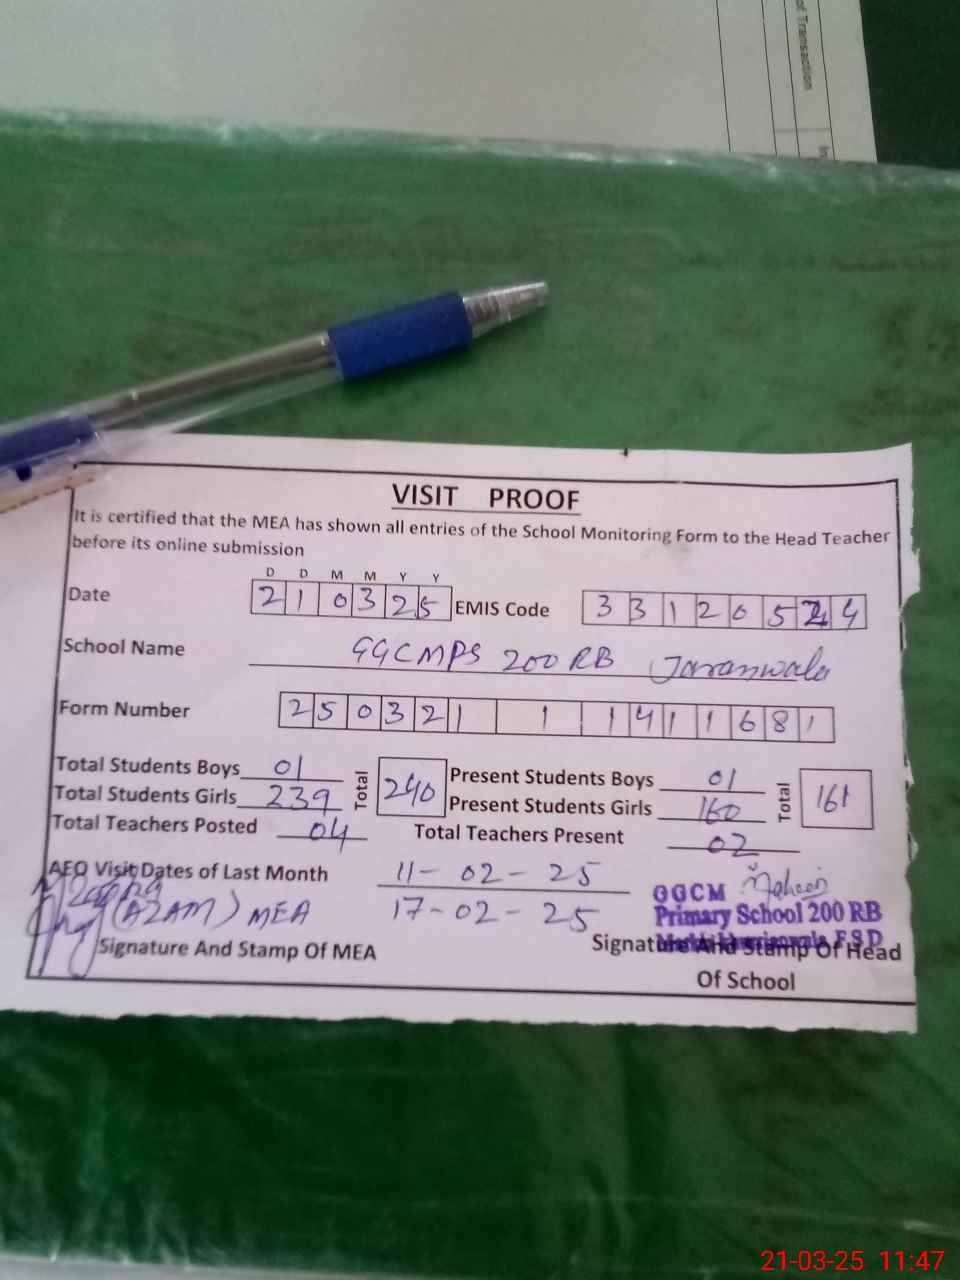 of Transaction
In
VISIT PROOF
It is certified that the MEA has shown all entries of the School Monitoring Form to the Head Teacher
before its online submission
D D M M Y Y
Date 2 1 0 3 2 5 EMIS Code 3 3 1 2 0 5 4
School Name GGCMPS 200 RB Jaranwala
Form Number 2 5 0 3 2 1 1 1 4 1 1 6 8 1
Total Students Boys 01 Total 240 Present Students Boys 01 Total 161
Total Students Girls 239 Present Students Girls 160
Total Teachers Posted 04 Total Teachers Present 02
AEO Visit Dates of Last Month 11-02-25
17-02-25
(AZAM) MEA
GGCM Maheen
Primary School 200 RB
FSD
Signature And Stamp Of MEA Signature And Stamp Of Head
Of School
21-03-25 11:47